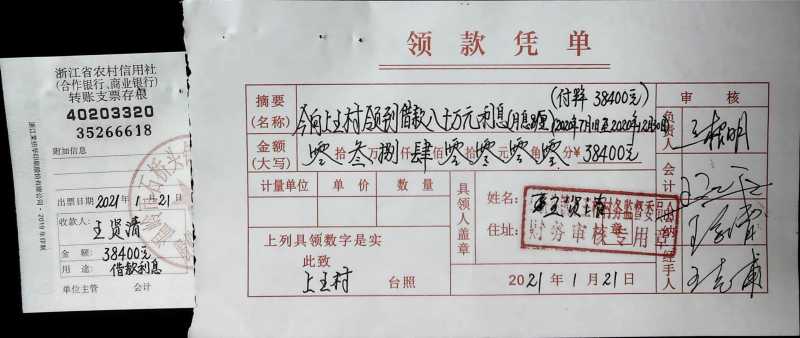 浙江省农村信用社
(合作银行、商业银行)
转账支票存根
40203320
35266618
附加信息
出票日期 2021年1月21日
收款人:
王贤清
金 额: 38400元
用 途: 借款利息
单位主管 会计
领款凭单
(付息 38400元)
摘要
(名称)
今向上王村领到借款八十万元利息
(2020年7月1日至2020年12月30日)
金额
(大写)
零拾叁万捌仟肆佰零拾零元零角零分¥38400元
计量单位 单 价 数 量
上列具领数字是实
此致
上王村 台照
具领人盖章
姓名:
住址:
村务监督委员会
财务审核专用章
2021年1月21日
审 核
负责人
会计
出纳
经手人